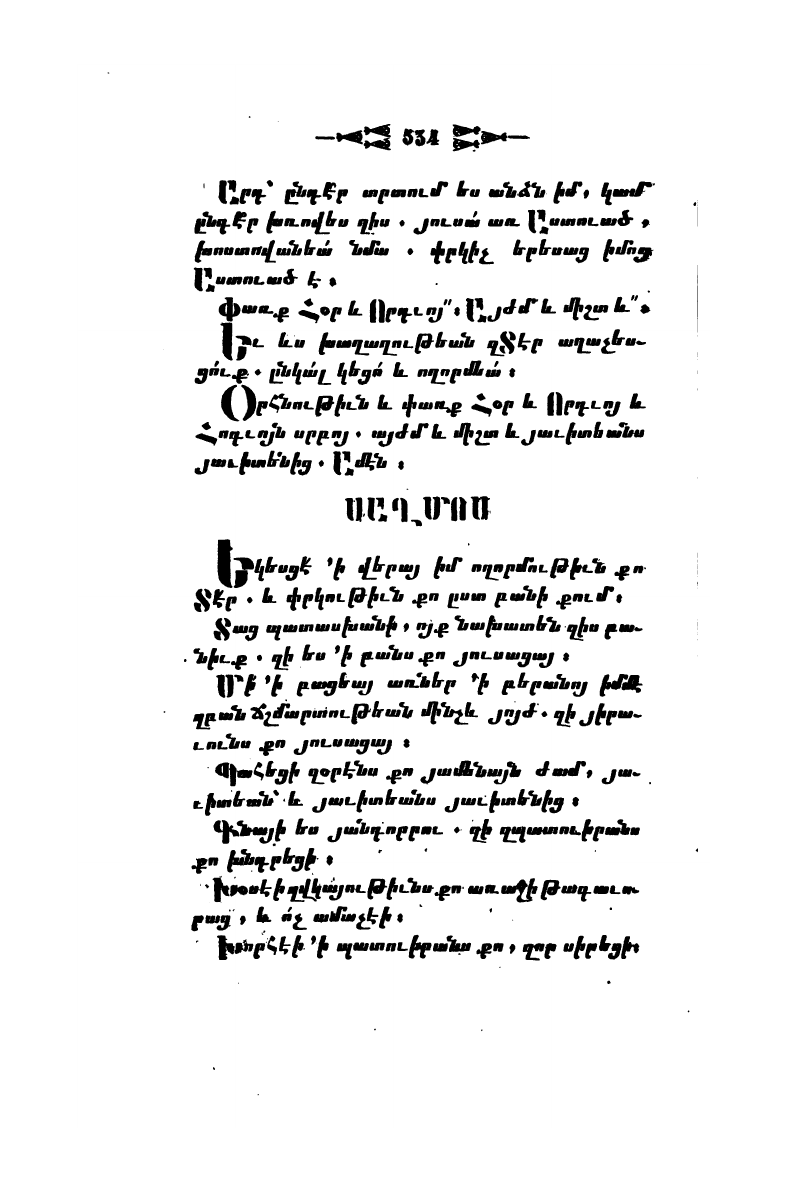 534
Արդ՝ ընդէր տրտում ես անձն իմ, կամ
ընդէր խռովես զիս . յուսա՛ առ Աստուած ,
խոստովանեա՛ նմա . փրկիչ երեսաց իմոց
Աստուած է ։
Փառք Հօր և Որդւոյ՞։ Այժմ և միշտ և՞ ։
Եւ ևս խաղաղութեան զՏէր աղաչես-
ցո՛ւք . ընկա՛լ կեցո՛ և ողորմեա՛ ։
Օրհնութիւն և փառք Հօր և Որդւոյ և
Հոգւոյն սրբոյ . այժմ և միշտ և յաւիտեանս
յաւիտենից . Ամէն ։
ՍԱՂՄՈՍ
Եկեսցէ ՚ի վերայ իմ ողորմութիւն քո
Տէր . և փրկութիւն քո ըստ բանի քում ։
Տաց պատասխանի , ոյք նախատեն զիս բա-
նիւք . զի ես ՚ի բանս քո յուսացայ ։
Մի՛ ՚ի բացեայ առներ ՚ի բերանոյ իմմէ
զբան ճշմարտութեան մինչև յոյժ . զի յիրա-
ւունս քո յուսացայ ։
Պահեցի զօրէնս քո յամենայն ժամ , յա-
ւիտեան՝ և յաւիտեանս յաւիտենից ։
Գնայի ես յանդորրու . զի զպատուիրանս
քո խնդրեցի ։
Խօսէի զվկայութիւնս քո առաջի Թագաւո-
րաց , և ո՛չ ամաչէի ։
Խորհէի ՚ի պատուիրանս քո , զոր սիրեցի։